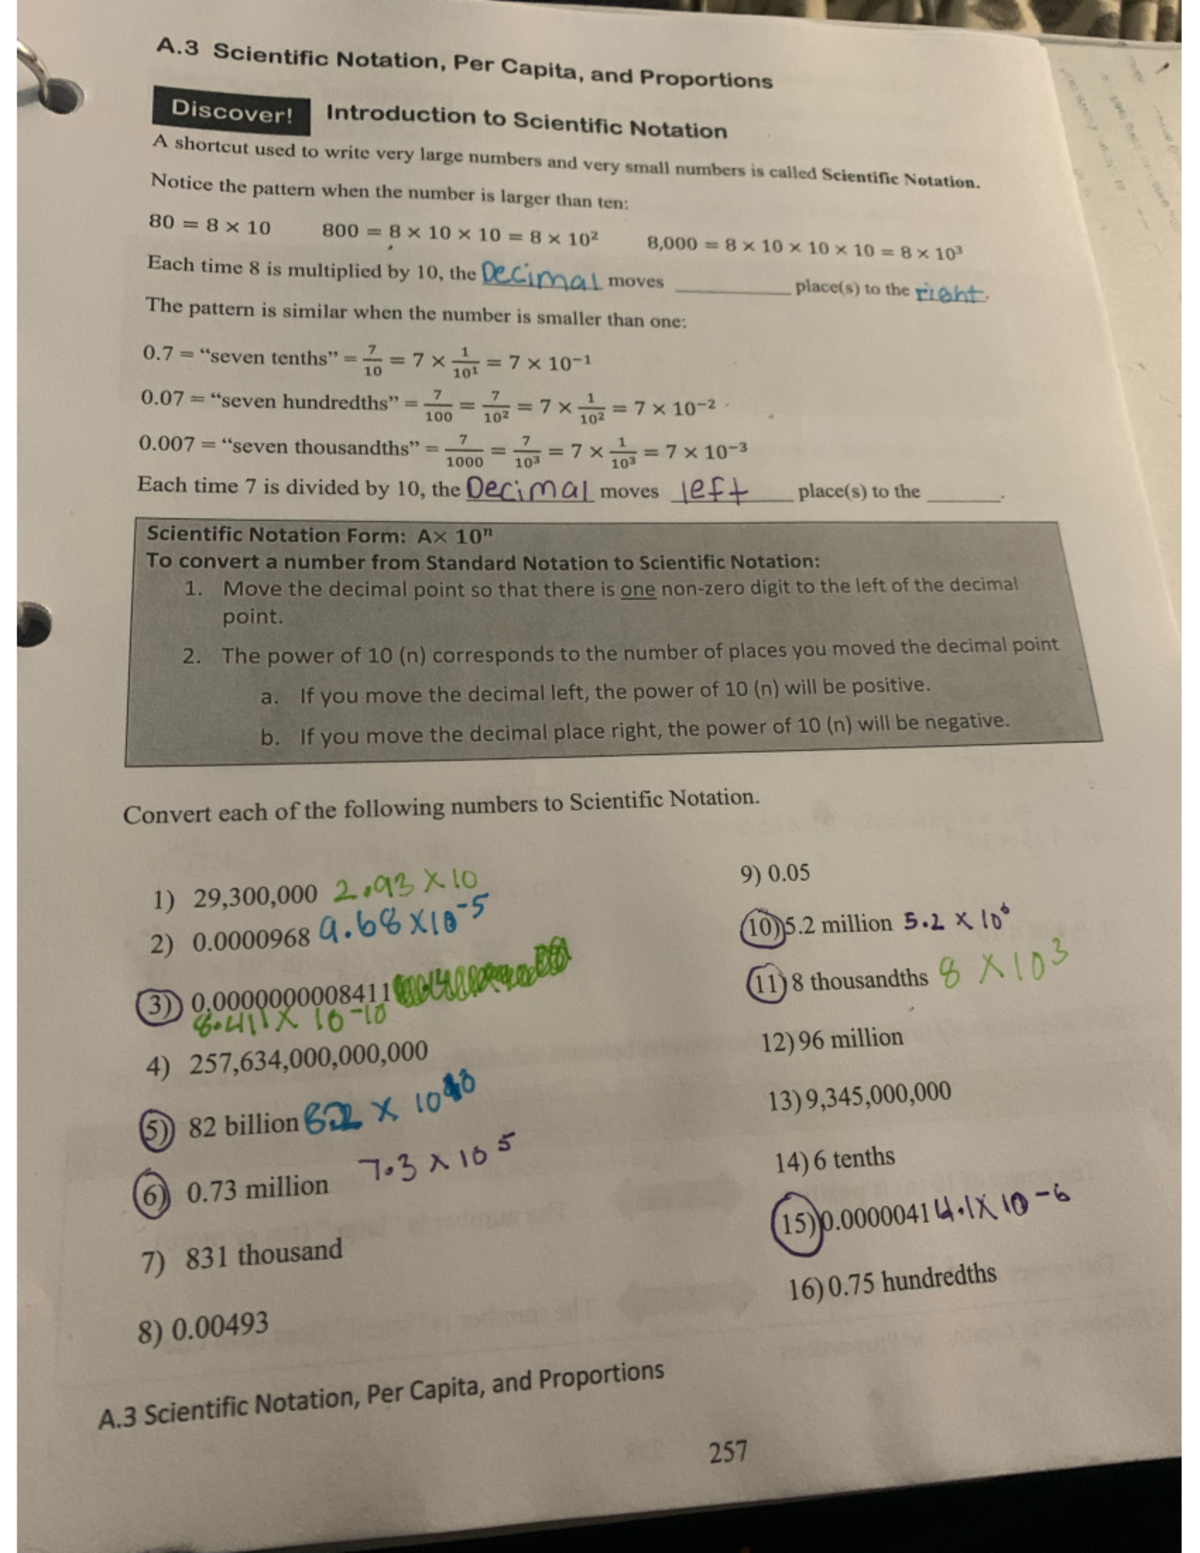 A.3 Scientific Notation, Per Capita, and Proportions
Discover! Introduction to Scientific Notation
A shortcut used to write very large numbers and very small numbers is called Scientific Notation.
Notice the pattern when the number is larger than ten:
80 = 8 × 10 800 = 8 × 10 × 10 = 8 × 10² 8,000 = 8 × 10 × 10 × 10 = 8 × 10³
Each time 8 is multiplied by 10, the Decimal moves ________ place(s) to the right.
The pattern is similar when the number is smaller than one:
0.7 = “seven tenths” = 7/10 = 7 × 1/10¹ = 7 × 10⁻¹
0.07 = “seven hundredths” = 7/100 = 7/10² = 7 × 1/10² = 7 × 10⁻²
0.007 = “seven thousandths” = 7/1000 = 7/10³ = 7 × 1/10³ = 7 × 10⁻³
Each time 7 is divided by 10, the Decimal moves left place(s) to the ______.
Scientific Notation Form: A× 10ⁿ
To convert a number from Standard Notation to Scientific Notation:
1. Move the decimal point so that there is one non-zero digit to the left of the decimal
point.
2. The power of 10 (n) corresponds to the number of places you moved the decimal point
a. If you move the decimal left, the power of 10 (n) will be positive.
b. If you move the decimal place right, the power of 10 (n) will be negative.
Convert each of the following numbers to Scientific Notation.
1) 29,300,000 2.93 × 10
2) 0.0000968 9.68 × 10⁻⁵
3) 0.0000000008411
8.411 × 10⁻¹⁰
4) 257,634,000,000,000
5) 82 billion × 10
6) 0.73 million 7.3 × 10⁵
7) 831 thousand
8) 0.00493
9) 0.05
10) 5.2 million 5.2 × 10⁶
11) 8 thousandths 8 × 10³
12) 96 million
13) 9,345,000,000
14) 6 tenths
15) 0.0000041 4.1 × 10⁻⁶
16) 0.75 hundredths
A.3 Scientific Notation, Per Capita, and Proportions
257